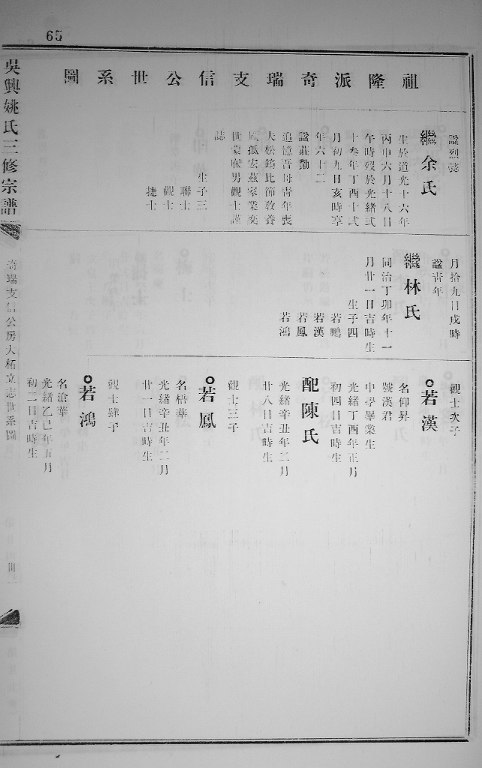 65
祖隆派奇瑞支信公世系圖
吳興姚氏三修宗譜
奇瑞支信公房大柘立志世系圖
諡烈誌
繼余氏
生於道光十六年
丙申六月十八日
午時歿於光緒弍
十叁年丁酉十弍
月初九日亥時享
年六十二
諡莊勤
追憶吾母青年喪
夫松銘比節教養
遺孤宏茲家業奕
世蒙庥男觀士謹
誌
生子三
聯士
觀士
捷士
月拾九日戌時
諡青年
繼林氏
同治丁卯年十一
月廿一日吉時生
生子四
若鵬
若漢
若鳳
若鴻
觀士次子
若漢
名仰昇
號漢君
中學畢業生
光緒丁酉年正月
初四日吉時生
配陳氏
光緒辛丑年二月
廿八日吉時生
觀士三子
若鳳
名梧華
光緒辛丑年二月
廿一日吉時生
觀士肆子
若鴻
名滄華
光緒乙巳年五月
初二日吉時生